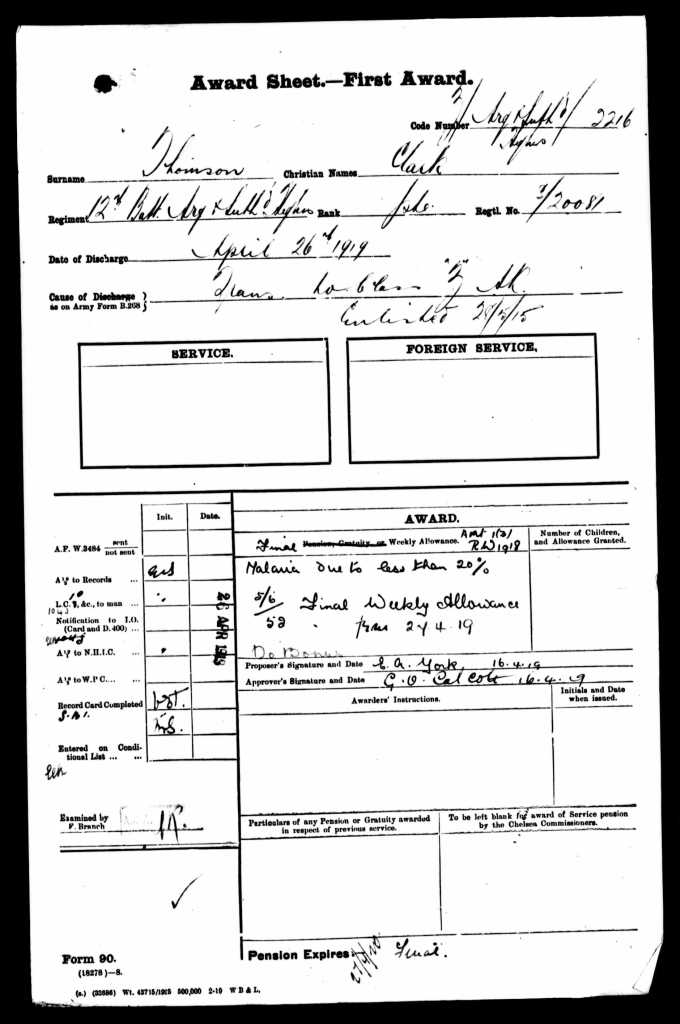 Award Sheet.—First Award.
Code Number 2/ Arg & Suth'd / 2216
Hghrs
Surname Thomson Christian Names Clark
Regiment 12th Batt. Arg & Suth'd Hghrs Rank Pte. Regtl. No. S/20081
Date of Discharge April 26th 1919
Cause of Discharge as on Army Form B.268 Trans to Class "Z" AR.
Enlisted 28/5/15
SERVICE.
FOREIGN SERVICE.
Init. Date.
AWARD.
A.F. W.3484 sent / not sent
Final Pension, Gratuity, or Weekly Allowance. Art 1(3) RW 1918
Number of Children, and Allowance Granted.
A/f to Records ...
Malaria due to less than 20%
L.C. &c., to man ...
1043
26 APR 1919
5/6 Final Weekly Allowance
52 " from 27.4.19
Notification to I.O. (Card and D. 400) ...
Do Bonus
A/f to N.H.I.C. ...
Proposer's Signature and Date E. A. York, 16.4.19
A/f to W.P.C. ...
Approver's Signature and Date G. O. Calcott 16.4.19
Awarders' Instructions.
Initials and Date when issued.
Record Card Completed
Entered on Conditional List ... ...
Examined by F. Branch
Particulars of any Pension or Gratuity awarded in respect of previous service.
To be left blank for award of Service pension by the Chelsea Commissioners.
Form 90.
(18278)—S.
Pension Expires: Final.
(s.) (33686) Wt. 43715/1925 500,000 2-19 W B & L.